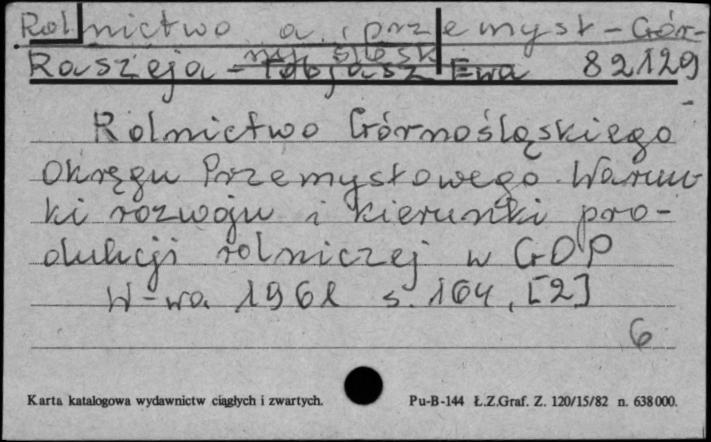 Rolnictwo a. przemysł - Gór-
ny Śląsk
Raszeja - Tobjasz Ewa 82129
Rolnictwo Górnośląskiego
Okręgu Przemysłowego. Warun-
ki rozwoju i kierunki pro-
dukcji rolniczej w GOP
W-wa 1962 s. 164, [2]
6
Karta katalogowa wydawnictw ciągłych i zwartych. Pu-B-144 Ł.Z.Graf. Z. 120/15/82 n. 638000.